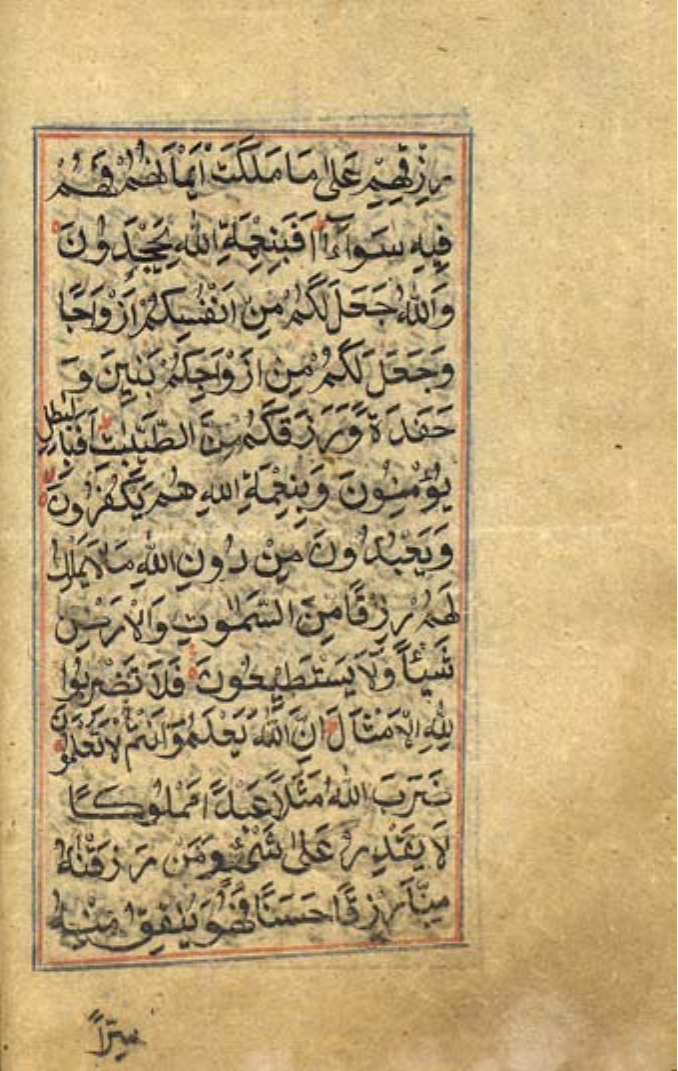 رِزْقِهِمْ عَلٰى مَا مَلَكَتْ اَيْمَانُهُمْ فَهُمْ
فِيهِ سَوَآءٌ اَفَبِنِعْمَةِ اللهِ يَجْحَدُونَ
وَاللهُ جَعَلَ لَكُمْ مِنْ اَنْفُسِكُمْ اَزْوَاجًا
وَجَعَلَ لَكُمْ مِنْ اَزْوَاجِكُمْ بَنِينَ وَ
حَفَدَةً وَرَزَقَكُمْ مِنَ الطَّيِّبٰتِ اَفَبِالْبٰطِلِ
يُؤْمِنُونَ وَبِنِعْمَةِ اللهِ هُمْ يَكْفُرُونَ
وَيَعْبُدُونَ مِنْ دُونِ اللهِ مَا لَا يَمْلِكُ
لَهُمْ رِزْقًا مِنَ السَّمٰوٰتِ وَالْاَرْضِ
شَيْئًا وَلَا يَسْتَطِيعُونَ فَلَا تَضْرِبُوا
لِلّٰهِ الْاَمْثَالَ اِنَّ اللهَ يَعْلَمُ وَاَنْتُمْ لَا تَعْلَمُونَ
ضَرَبَ اللهُ مَثَلًا عَبْدًا مَمْلُوكًا
لَا يَقْدِرُ عَلٰى شَيْءٍ وَمَنْ رَزَقْنٰهُ
مِنَّا رِزْقًا حَسَنًا فَهُوَ يُنْفِقُ مِنْهُ
سِرًّا